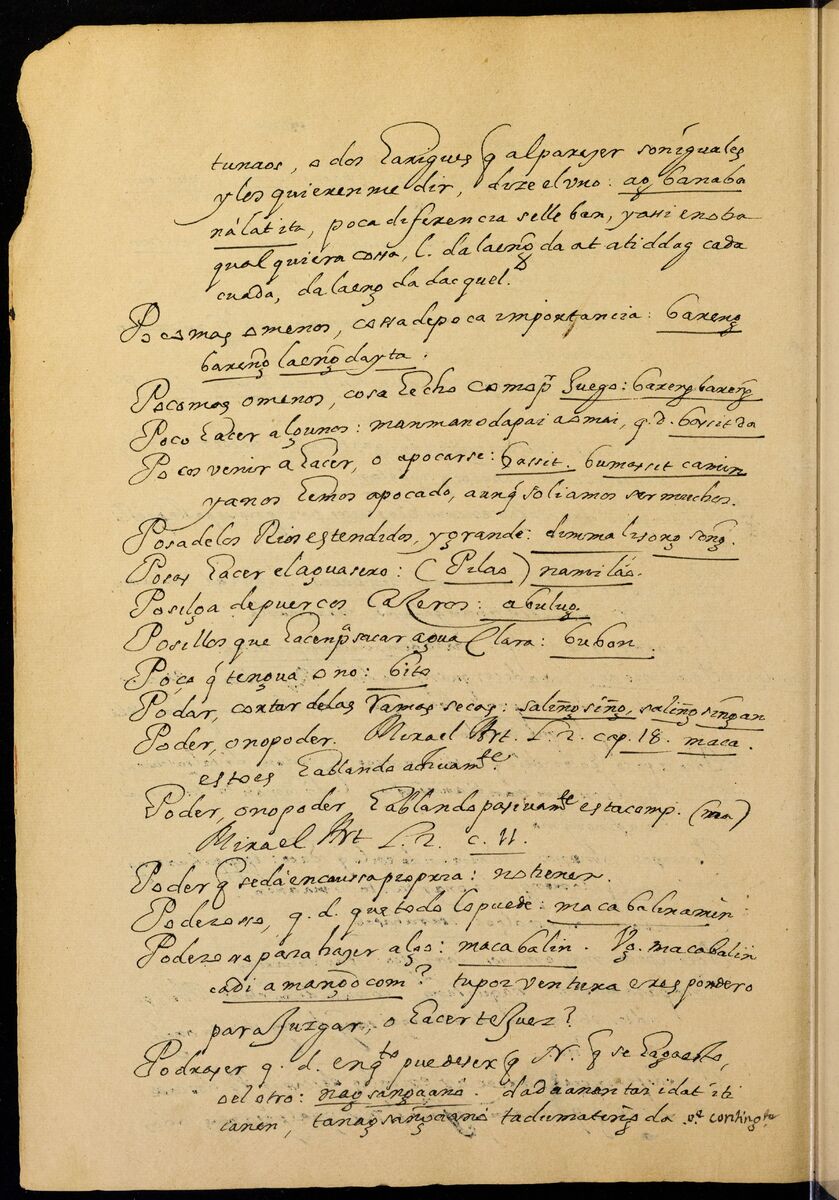 tunaos, o dos Harigues q̃ al pareser son iguales
y los quieren medir, dize el vno: ag banaba
nálatita, poca diferencia se lleban, y assi en otra
qualquiera cossa, l. dalaeng̃ da at atiddag cada
cuada, dalaeng da dacquel.
Poco mas o menos, cossa de poca importancia: bareng
bareñg laeñg dayta.
Poco mas o menos, cosa hecho como pʳ Juego: bareng bareñg
Poco hacer algunos: manmano da pai a omai, q. d. bassit da
Pocos venir a hacer, o apocarse: bassit. bumassit camin
ya nos hemos apocado, aunq̃ soliamos ser muchos.
Posa de los Rios estendidos, y grande: dimmalisong soñg.
Posas hacer el aguasero: (Pilao) namiláo.
Posilga de puercos caseros: abulug.
Posillos que hacen pᵃ sacar agua Clara: bubon.
Poça q̃ tenga agua o no: bito
Podar, cortar de las Ramas secas: saliñgsiñg, saliñgsiñgan
Poder, o no poder. Mirael Art. L. 2. cap. 18. maca.
esto es hablando activamᵗᵉ.
Poder, o no poder hablando pasivamᵗᵉ esta comp. (ma)
Mirael Art L. 2. c. 11.
Poder q̃ se dá en caussa propria: no tiener.
Poderosso, q. d. que todo lo puede: macabalinamin
Poderoso para hazer algo: macabalin. Vg. macabalin
cadi a mangocom? tu por ventura eres poderoso
para Juzgar, o hacerte Juez?
Podrases q. d. enqᵗᵒ puede ser q̃ N. q̃ se haga esto,
o el otro: nagsangaanó. dadaanan tai idat iti
canen, ta nagsangaanó ta dumateñg da. vᵉ contingᵗᵉʳ